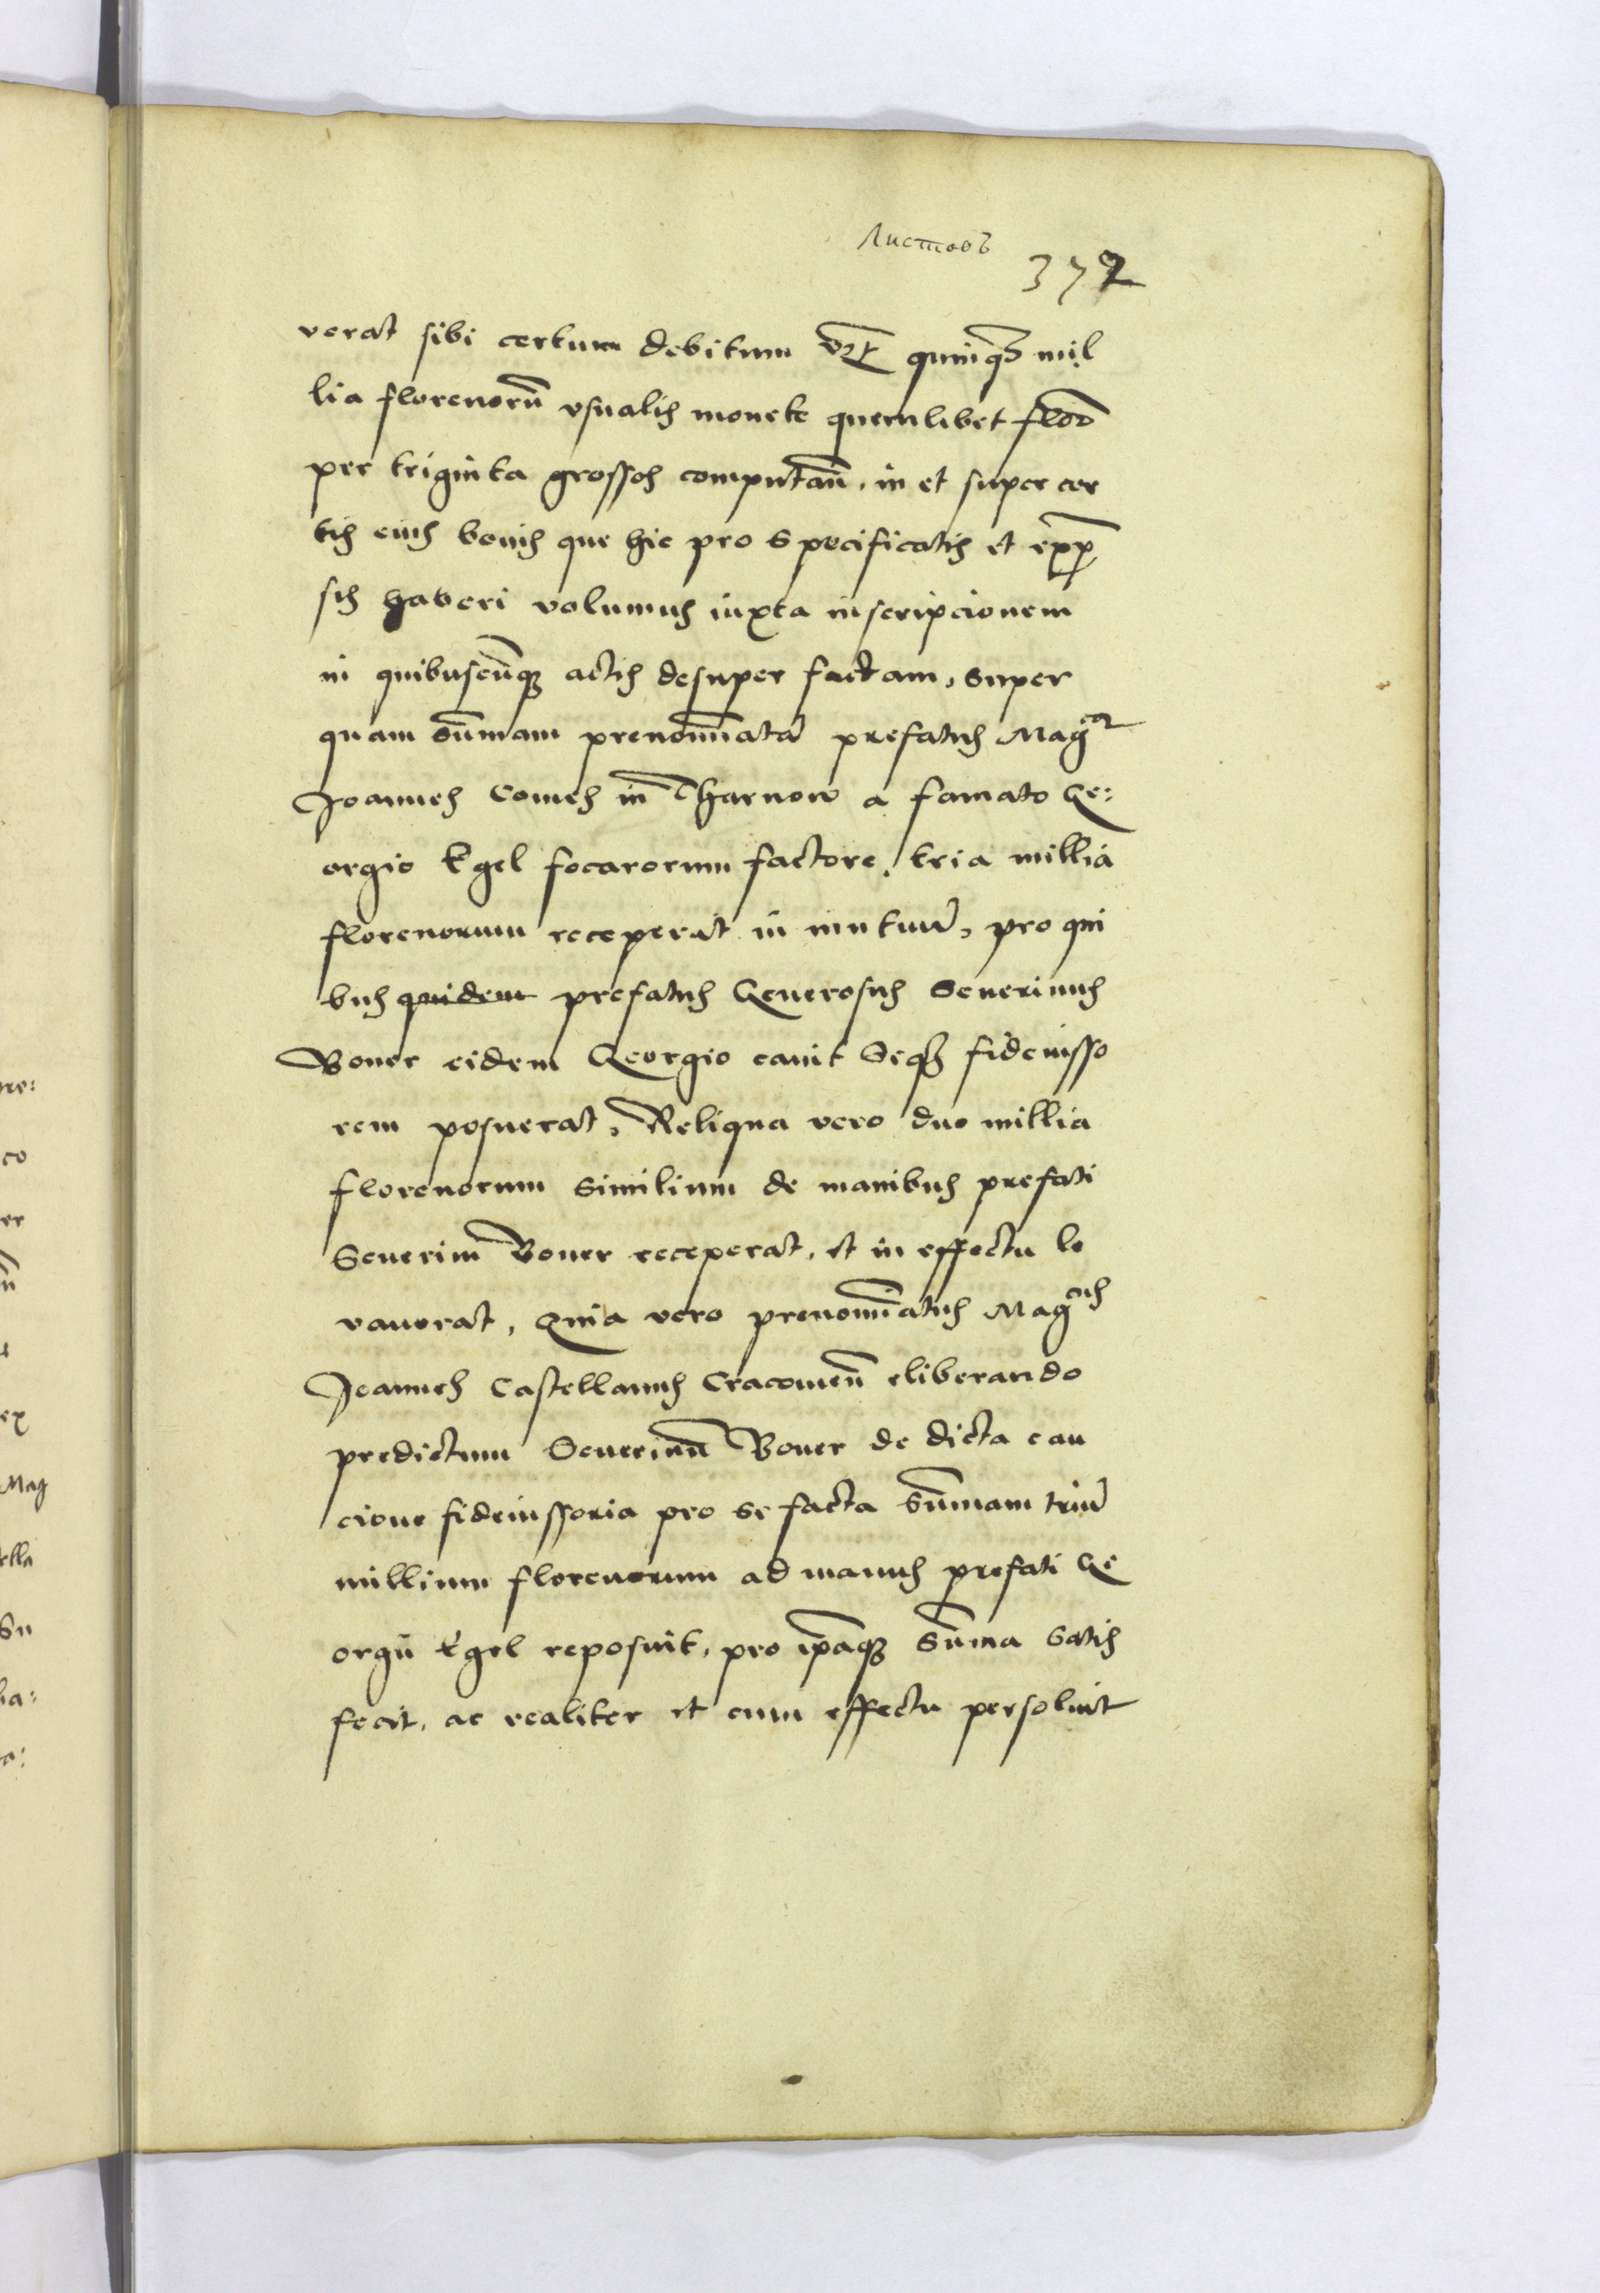 Листовъ
372
verat sibi certum debitum vꝫt quinqꝫ mil
lia florenorū vsualis monete quemlibet flo
per triginta grossos computañ, in et super cer
tis eius bonis que hic pro specificatis et exp
sis haberi volumus iuxta inscripcionem
in quibuscūqꝫ actis desuper factam, super
quam sūmam prenominatā prefatus Magr
Joannes Comes in Tharnow a famato Ge:
orgio Egel focarorum factore, tria millia
florenorum receperat in mutuū, pro qui
bus quidem prefatus Generosus Seuerinus
Boner eidem Georgio cauit Seqꝫ fideiusso
rem posuerat, Reliqua vero duo millia
florenorum similium de manibus prefati
Seuerini Boner receperat, et in effectu le
vauerat, Quia vero prenominatus Magcus
Joannes Castellanus Cracouieñ eliberando
predictum Seuerinū Boner de dicta cau
cione fideiussoria pro se facta sūmam triū
millium florenorum ad manus prefati Ge
orgii Egel reposuit, pro ipāqꝫ sūma satis
fecit, ac realiter et cum effectu persoluit
ne:
co
er
ex
Mag
ella
Su
lia: